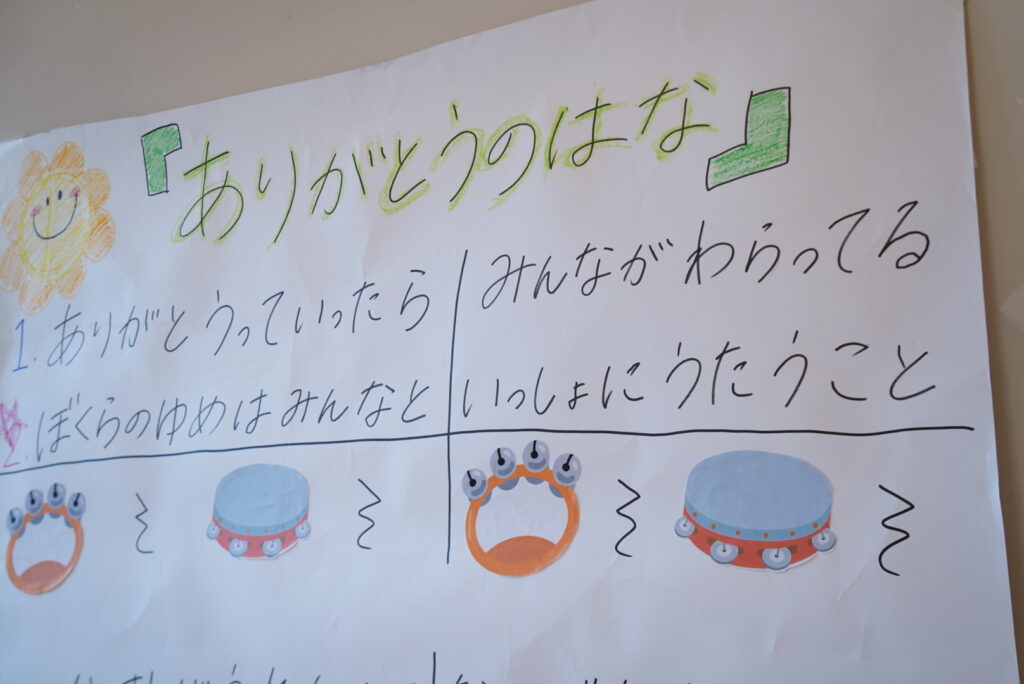 『ありがとうのはな』
1. ありがとうっていったら みんながわらってる
2. ぼくらのゆめはみんなと いっしょにうたうこと